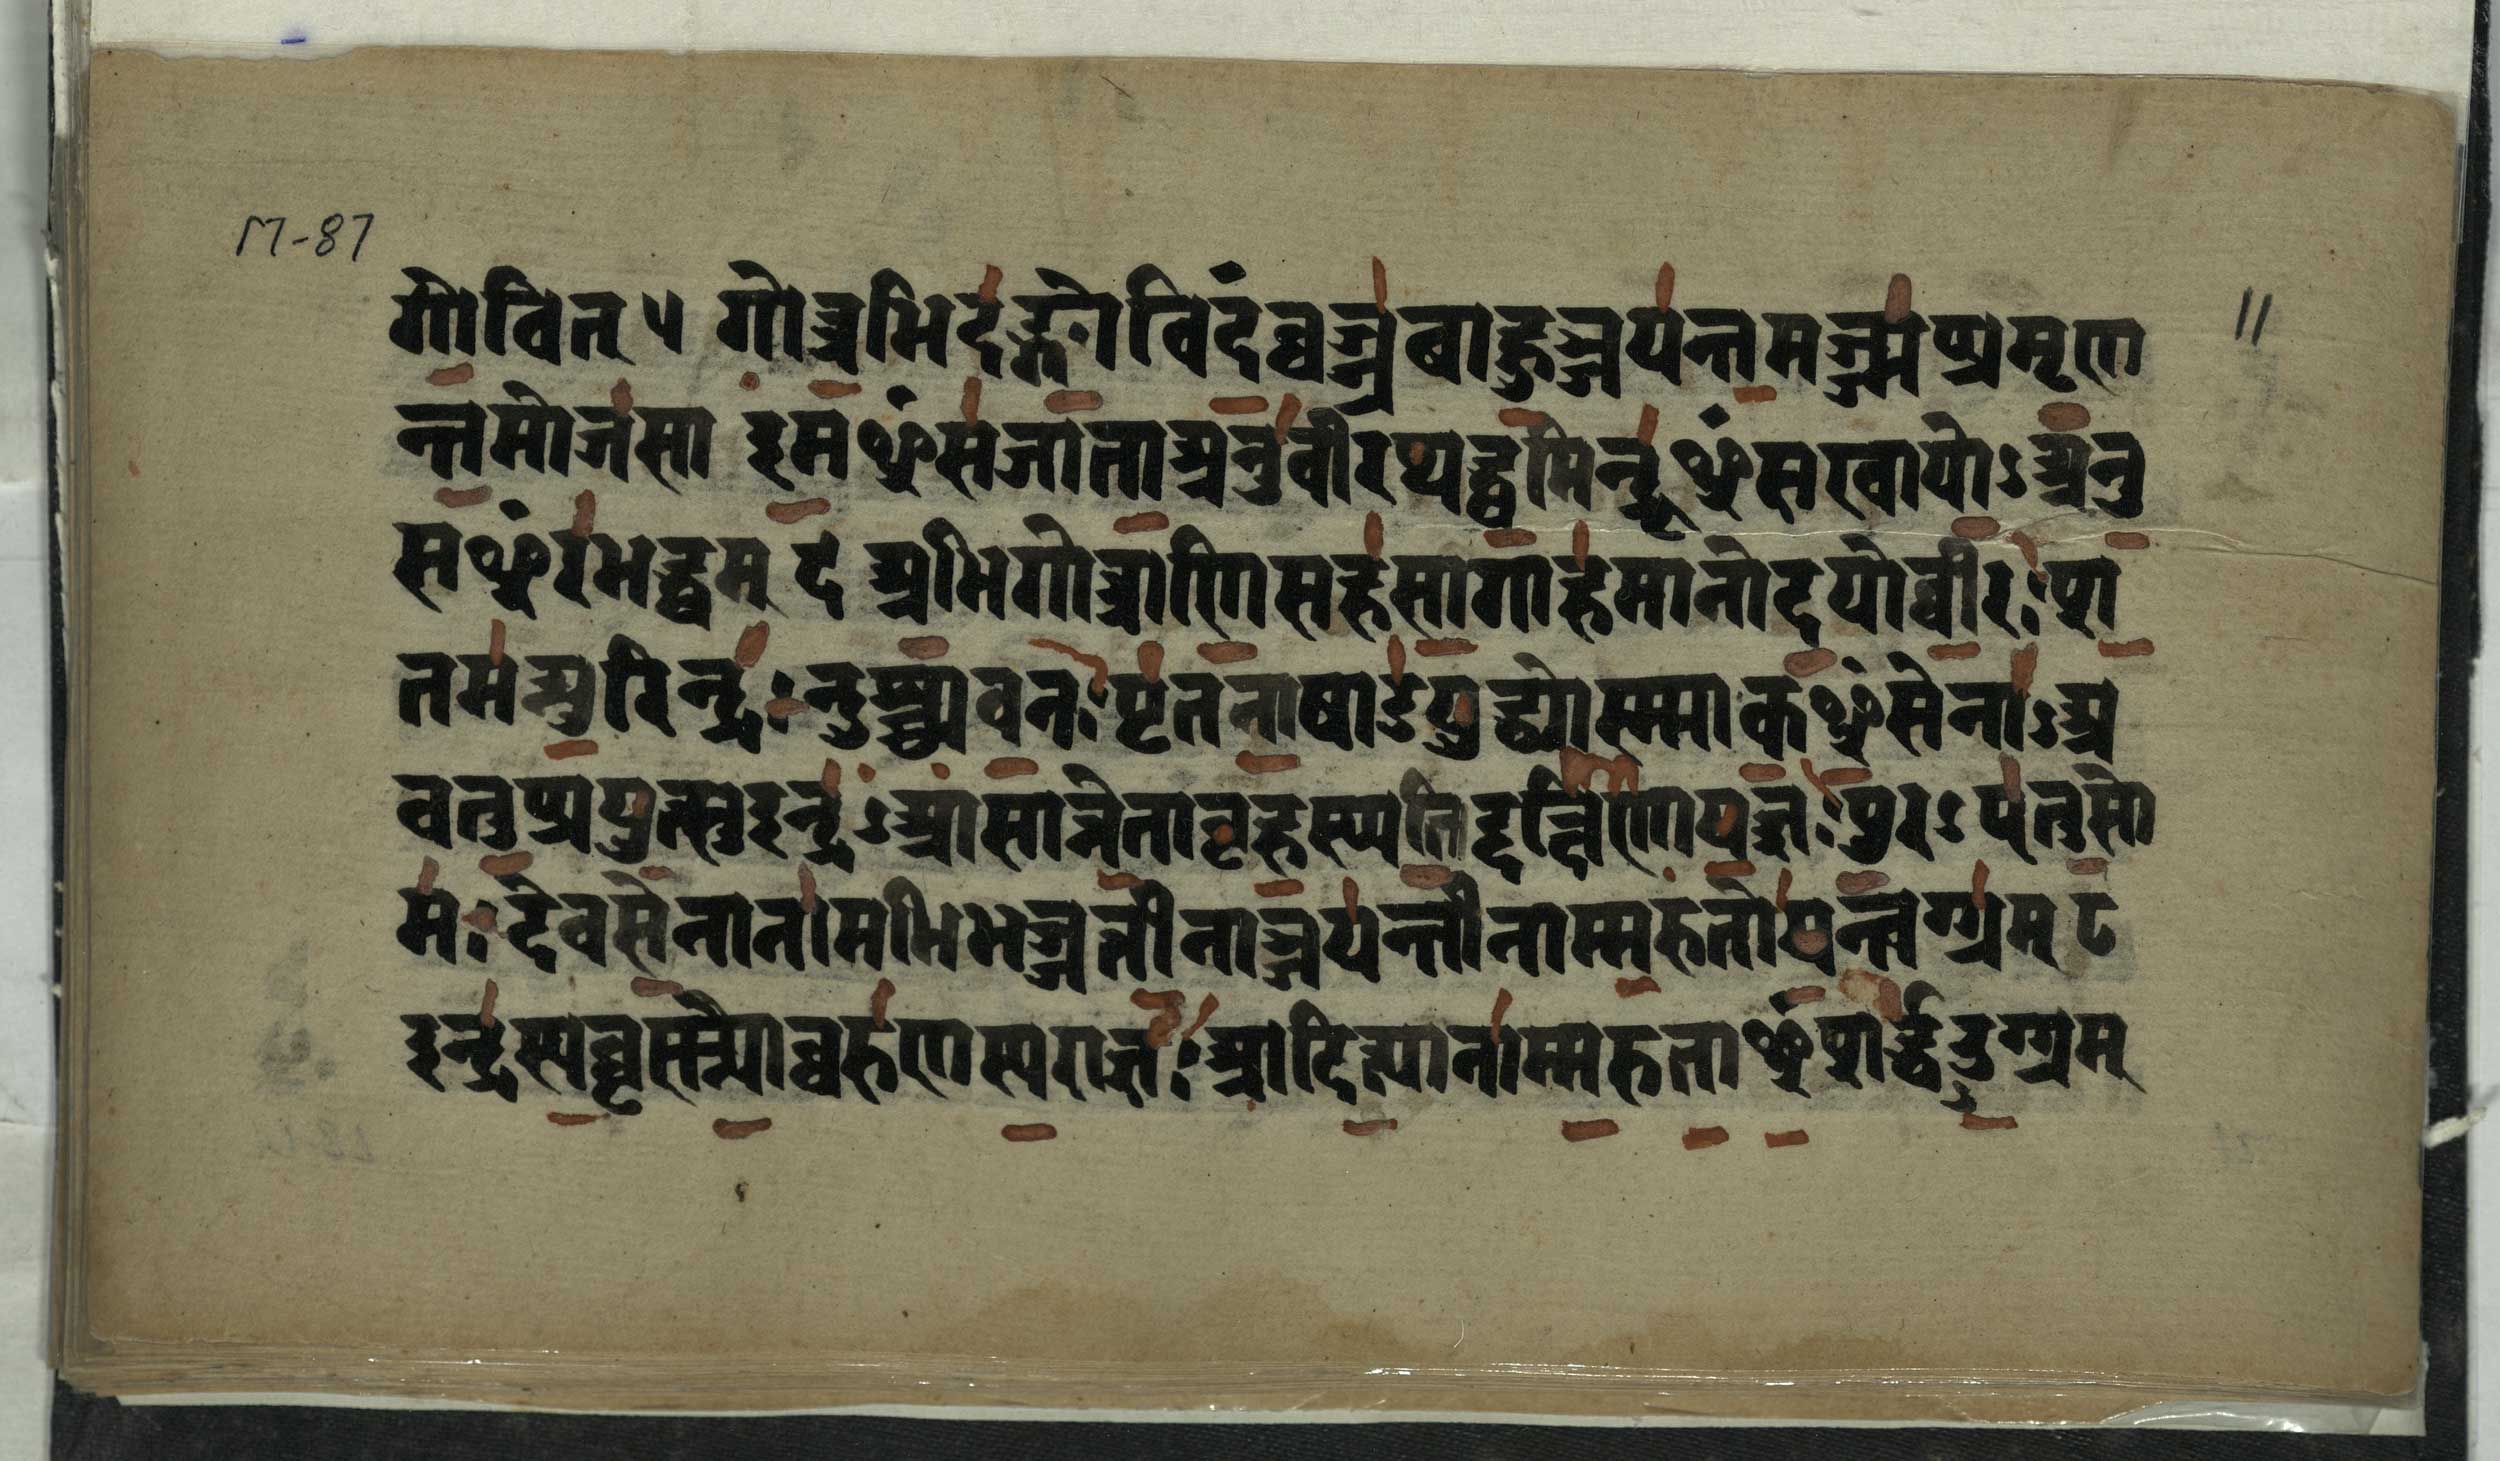 M-87
11
गोवित् ५ गोत्रभिदङ्गोविदंव्वज्ज्रबाहुञ्जयन्तमज्ज्मप्प्रमृण
न्तमोजसा इमᳪसजाताऽअनुवीरयद्ध्वमिन्द्रᳪसखायोऽअनु
सᳪरभद्ध्वम् ६ अभिगोत्राणिसहसागाहमानोदयोव्वीरःश
तमन्युरिन्द्रः दुश्च्यवनःपृतनाषाडयुद्ध्योस्म्माकᳪसेनाऽअ
वतुप्प्रयुत्सु इन्द्रऽआसान्नेताबृहस्प्पतिर्द्दक्षिणायज्ञःपुरऽएतुसो
मः देवसेनानामभिभञ्जतीनाञ्जयन्तीनाम्मरुतोयन्त्वग्ग्रम् ८
इन्द्रस्यव्वृष्ण्णोव्वरुणस्यराज्ञःआदित्यानाम्मरुताᳪशर्द्धऽउग्ग्रम्